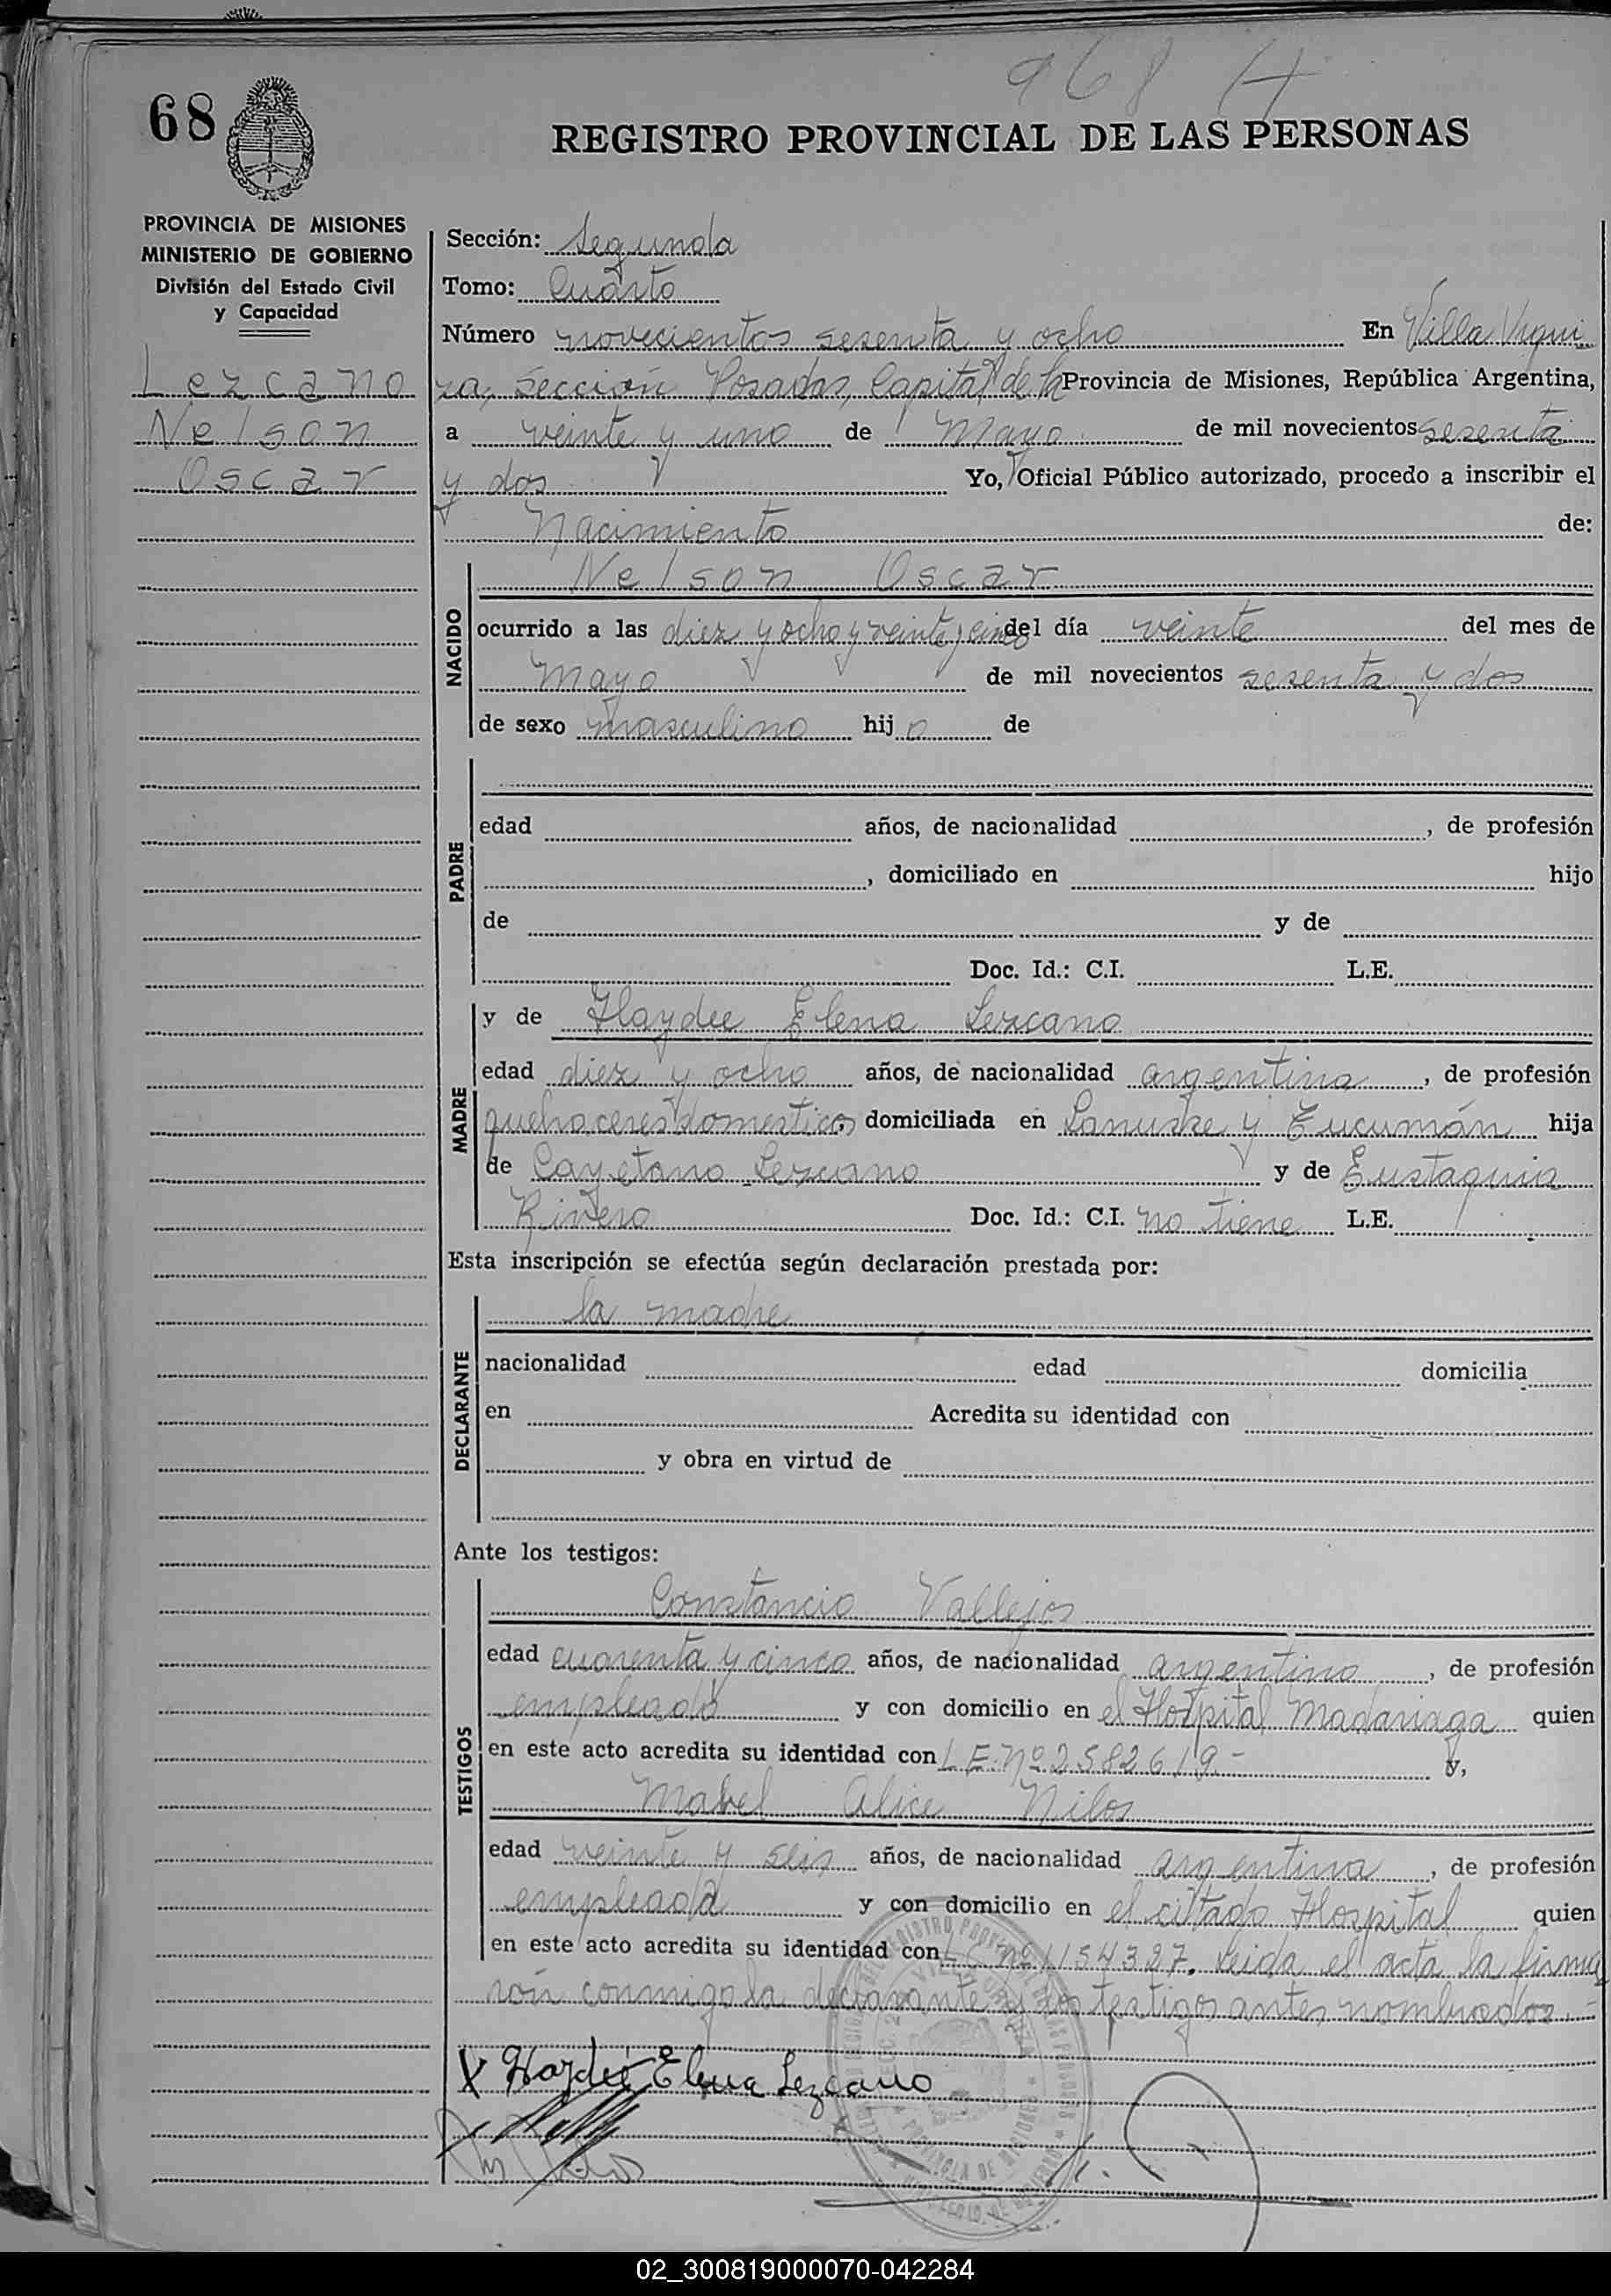 968 A
68
REGISTRO PROVINCIAL DE LAS PERSONAS
PROVINCIA DE MISIONES
MINISTERIO DE GOBIERNO
División del Estado Civil
y Capacidad
Lezcano
Nelson
Oscar
Sección: Segunda
Tomo: Cuarto
Número novecientos sesenta y ocho En Villa Urqui
za, Sección Posadas, Capital de la Provincia de Misiones, República Argentina,
a veinte y uno de Mayo de mil novecientos sesenta
y dos Yo, Oficial Público autorizado, procedo a inscribir el
Nacimiento de:
NACIDO
Nelson Oscar
ocurrido a las diez y ocho y veinte y cinco del día veinte del mes de
mayo de mil novecientos sesenta y dos
de sexo masculino hijo de
PADRE
edad años, de nacionalidad , de profesión
, domiciliado en hijo
de y de
Doc. Id.: C.I. L.E.
MADRE
y de Haydee Elena Lezcano
edad diez y ocho años, de nacionalidad argentina, de profesión
quehaceres domesticos domiciliada en Lanusse y Tucumán hija
de Cayetano Lezcano y de Eustaquia
Rivero Doc. Id.: C.I. no tiene L.E.
Esta inscripción se efectúa según declaración prestada por:
DECLARANTE
la madre
nacionalidad edad domicilia
en Acredita su identidad con
y obra en virtud de
Ante los testigos:
TESTIGOS
Constancio Vallejos
edad cuarenta y cinco años, de nacionalidad argentino, de profesión
empleado y con domicilio en el Hospital Madariaga quien
en este acto acredita su identidad con L.E. Nº 2582619.- y,
Mabel Alice Nilos
edad veinte y seis años, de nacionalidad argentina, de profesión
empleada y con domicilio en el citado Hospital quien
en este acto acredita su identidad con L.C. nº 1154327. Leida el acta la firma
rón conmigo la declarante y los testigos antes nombrados.=
X Haydeé Elena Lezcano
02_300819000070-042284